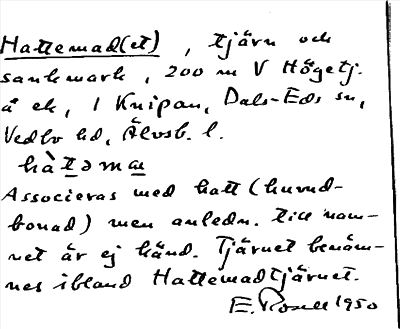 Hattemad(et), tjärn och
sankmark, 200 m V Högetj.
å ek, 1 Knipan, Dals-Eds sn,
Vedbo hd, Älvsb. l.
hàtəma
Associeras med hatt (huvud-
bonad) men anledn. till nam-
net är ej känd. Tjärnet benäm-
nes ibland Hattemadtjärnet.
E. Rosell 1950